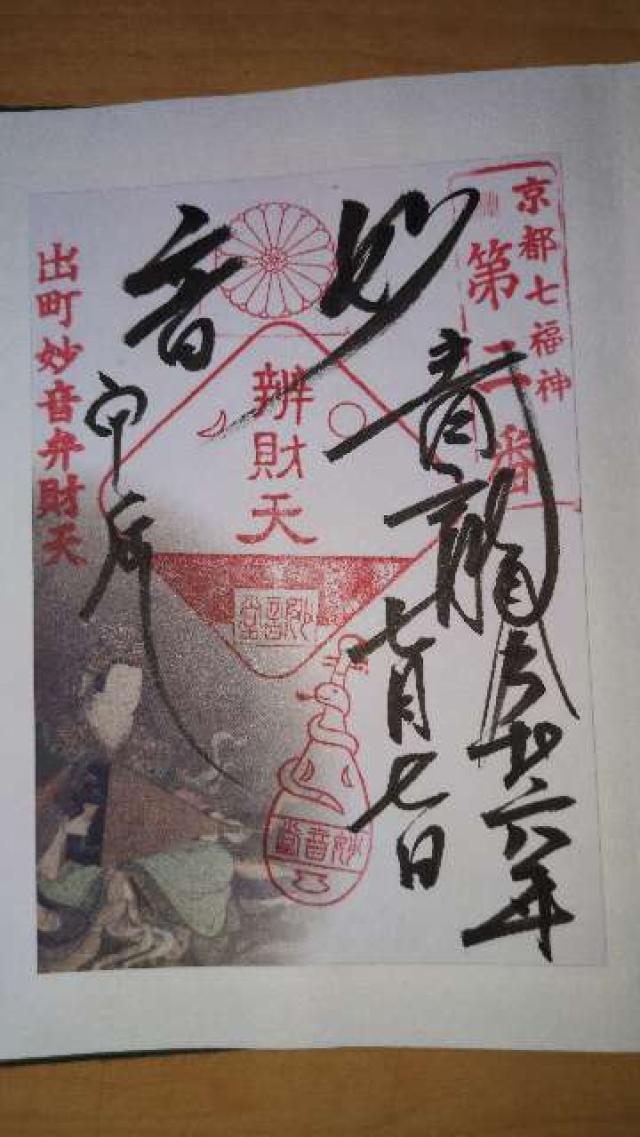 京都七福神
第二番
青龍
令和六年
七月七日
妙音
辨財天
妙音堂
妙音堂
甲辰
出町妙音弁財天